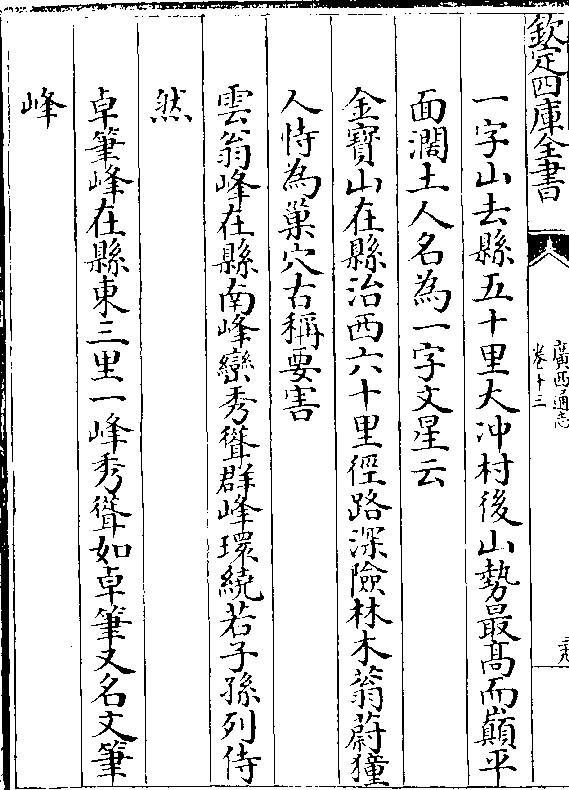 欽定四庫全書
廣西通志
卷十三
一字山去縣五十里大冲村後山勢最高而巔平
面濶土人名為一字文星云
金寶山在縣治西六十里徑路深險林木蓊蔚獞
人恃為巢穴古稱要害
雲翁峰在縣南峰巒秀聳群峰環繞若子孫列侍
然
卓筆峰在縣東三里一峰秀聳如卓筆又名文筆
峰